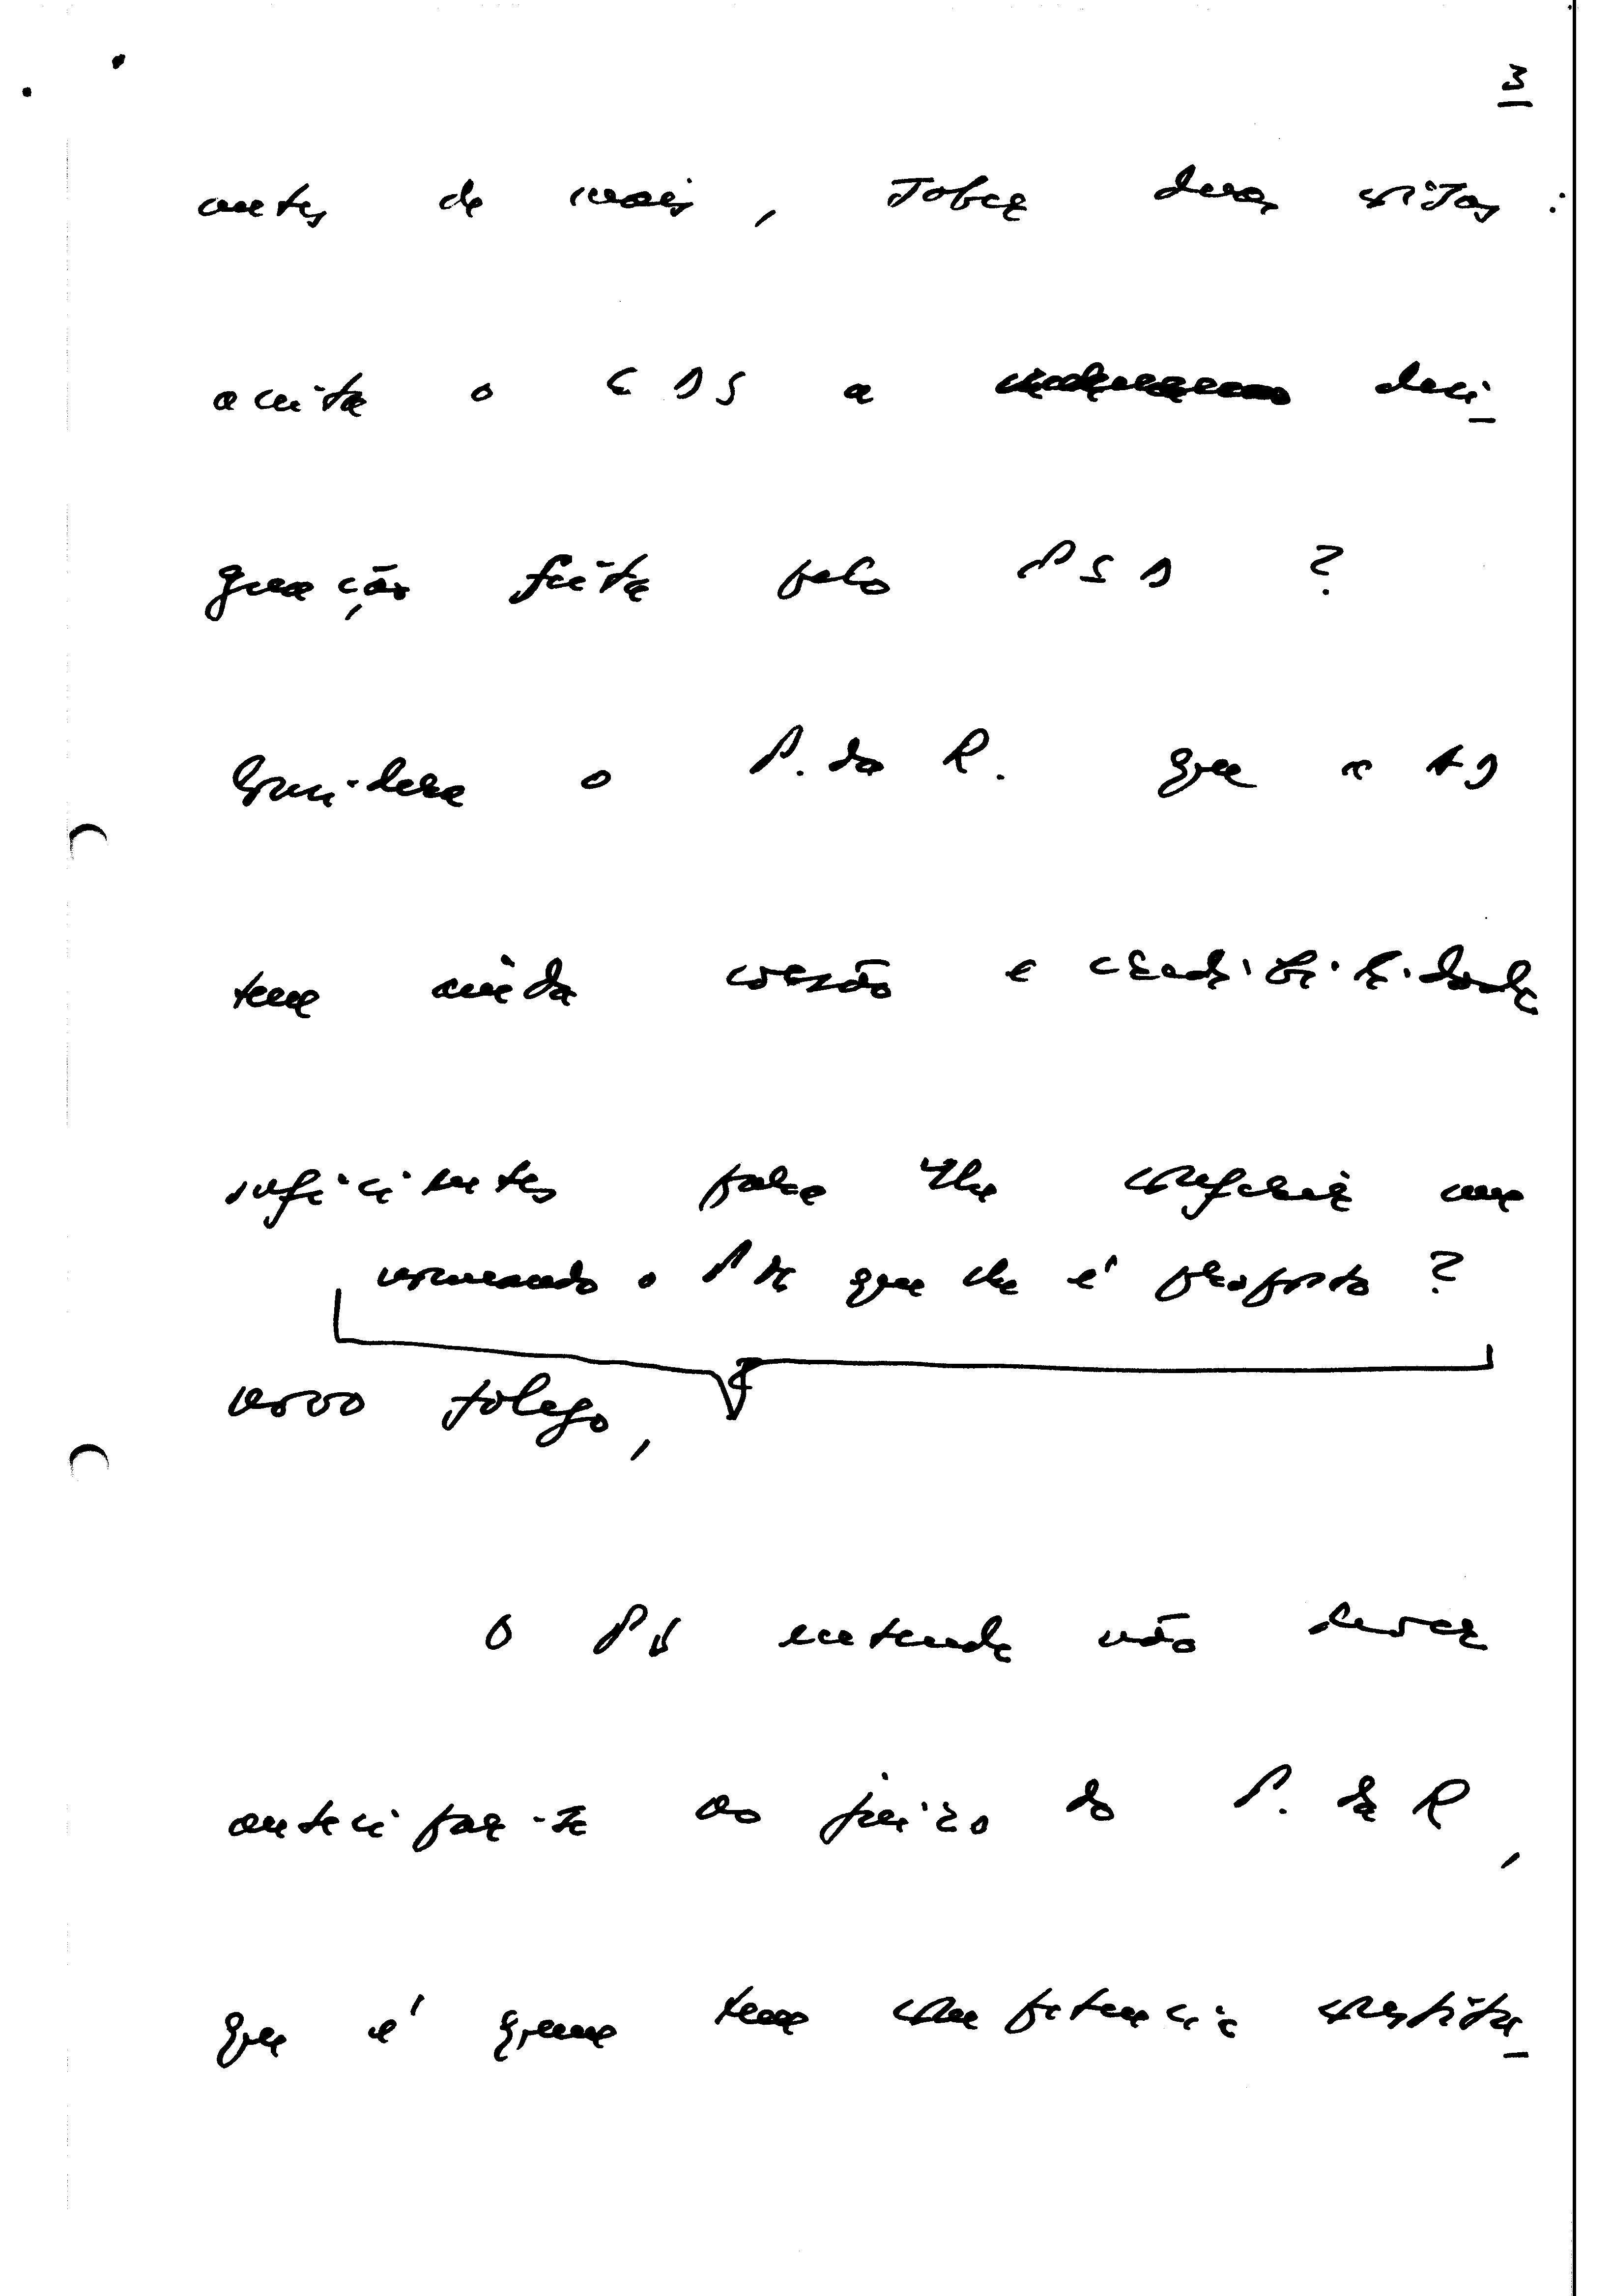 3
antes de mais, sobre duas coisas:
aceita o CDS a desi-
gnação feita pelo PSD?
Considera o P. da R. que a AD
tem ainda coesão e credibilidade
suficientes para lhe conferir um
nomeando o PM que lhe é proposto?
novo fôlego,
O PS entende não dever
antecipar-se ao juízo do P. da R,
que é quem tem competência constitu-